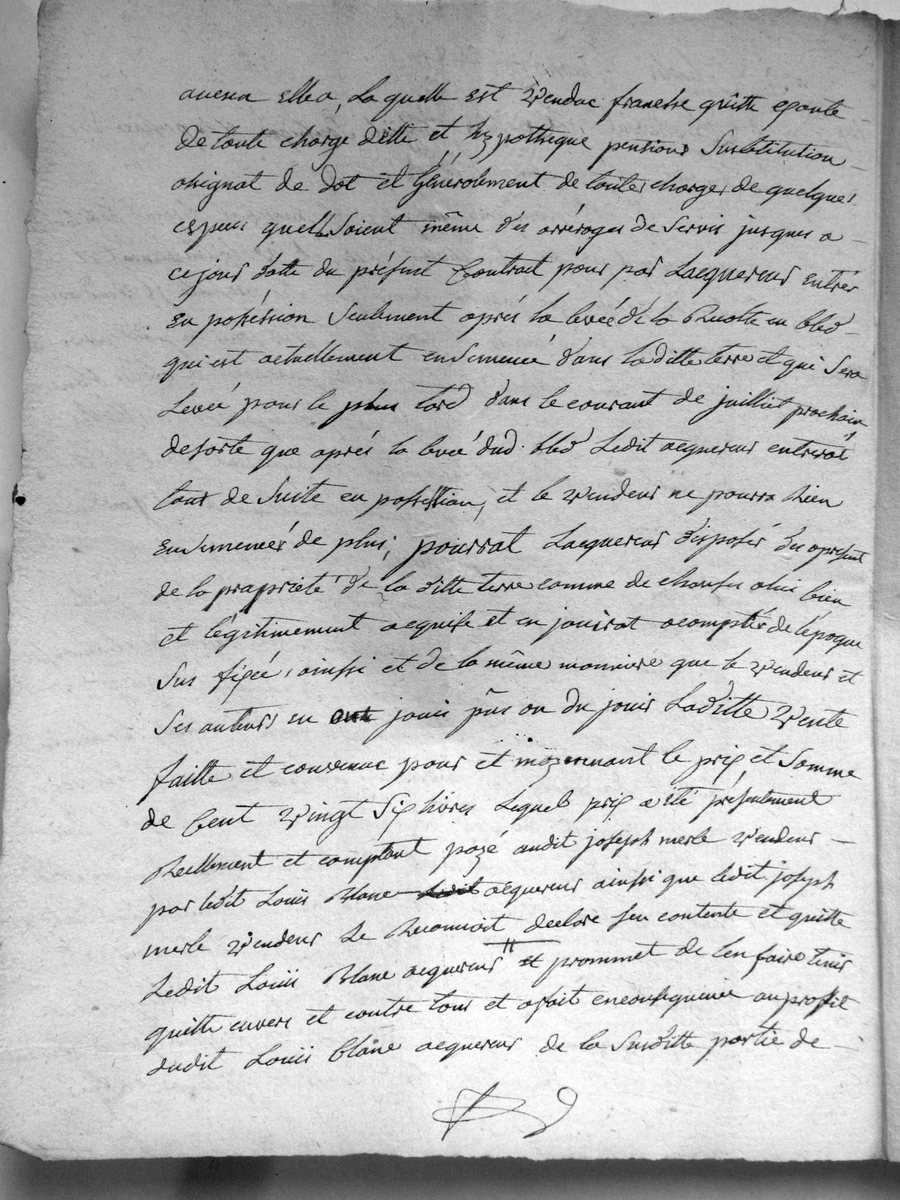 aucun elles, Laquelle est vendue franche quitte exante
de toute charge dette et hypothèque pension Substitution
asignat de dot et Générolement de toutes charges de quelques
espèces quell soient même des arrérages de Servis jusques a
ce jour datte du présent Contrait pour par Lacquereur entrér
en poséssion Seulement aprés la levée de la Recolte en bled
qui est actuellement ensemencé dans laditte terre et qui Sera
Levée pour le plus tard dans le courant de juilliet prochain
desorte que aprés la levée dud. bled Ledit acquereur entrerat
tout de Suite en possession, et le vendeur ne pourra Rien
ensemencér de plus; pourrat Lacquereur disposér des apresent
de la propriete de la ditte terre comme de choses a lui bien
et légitimement acquise et en jouirat acomptér de lépoque
Sus fixée, ainssi et de la même manniere que le vendeur et
Ses auteurs en ont jouis pûs ou du jouir Laditte vente
faitte et convenue pour et moyennant le prix et Somme
de Cent vingt Six livres Lequel prix a été présentement
Reellement et comptant payé audit joseph merle vendeur
par ledit Louis Blanc ledit acquereur ainssi que ledit joseph
merle vendeur Le Reconnoit declare sen contente et quitte
Ledit Louis Blanc acquereur et prommet de len faire tenir
quitte envers et contre tous et afait enconsequence au profit
dudit Louis blanc acquereur de la Susditte partie de